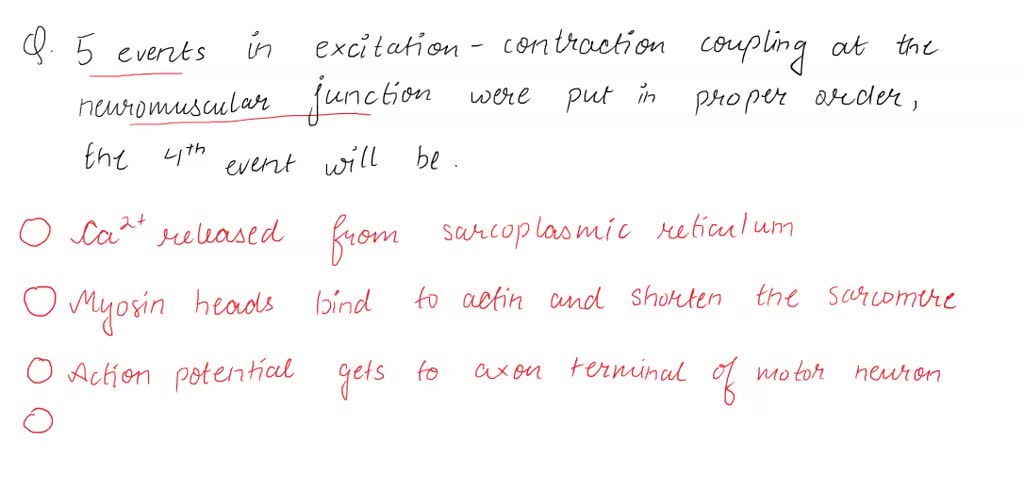 Q. 5 events in excitation - contraction coupling at the
neuromuscular junction were put in proper order,
the 4th event will be.
Ca²⁺ released from sarcoplasmic reticulum
Myosin heads bind to actin and shorten the sarcomere
Action potential gets to axon terminal of motor neuron